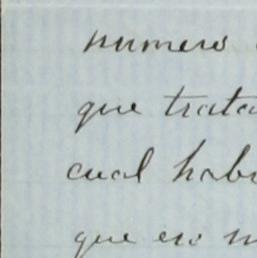 numero
que trata
cual habi
que era